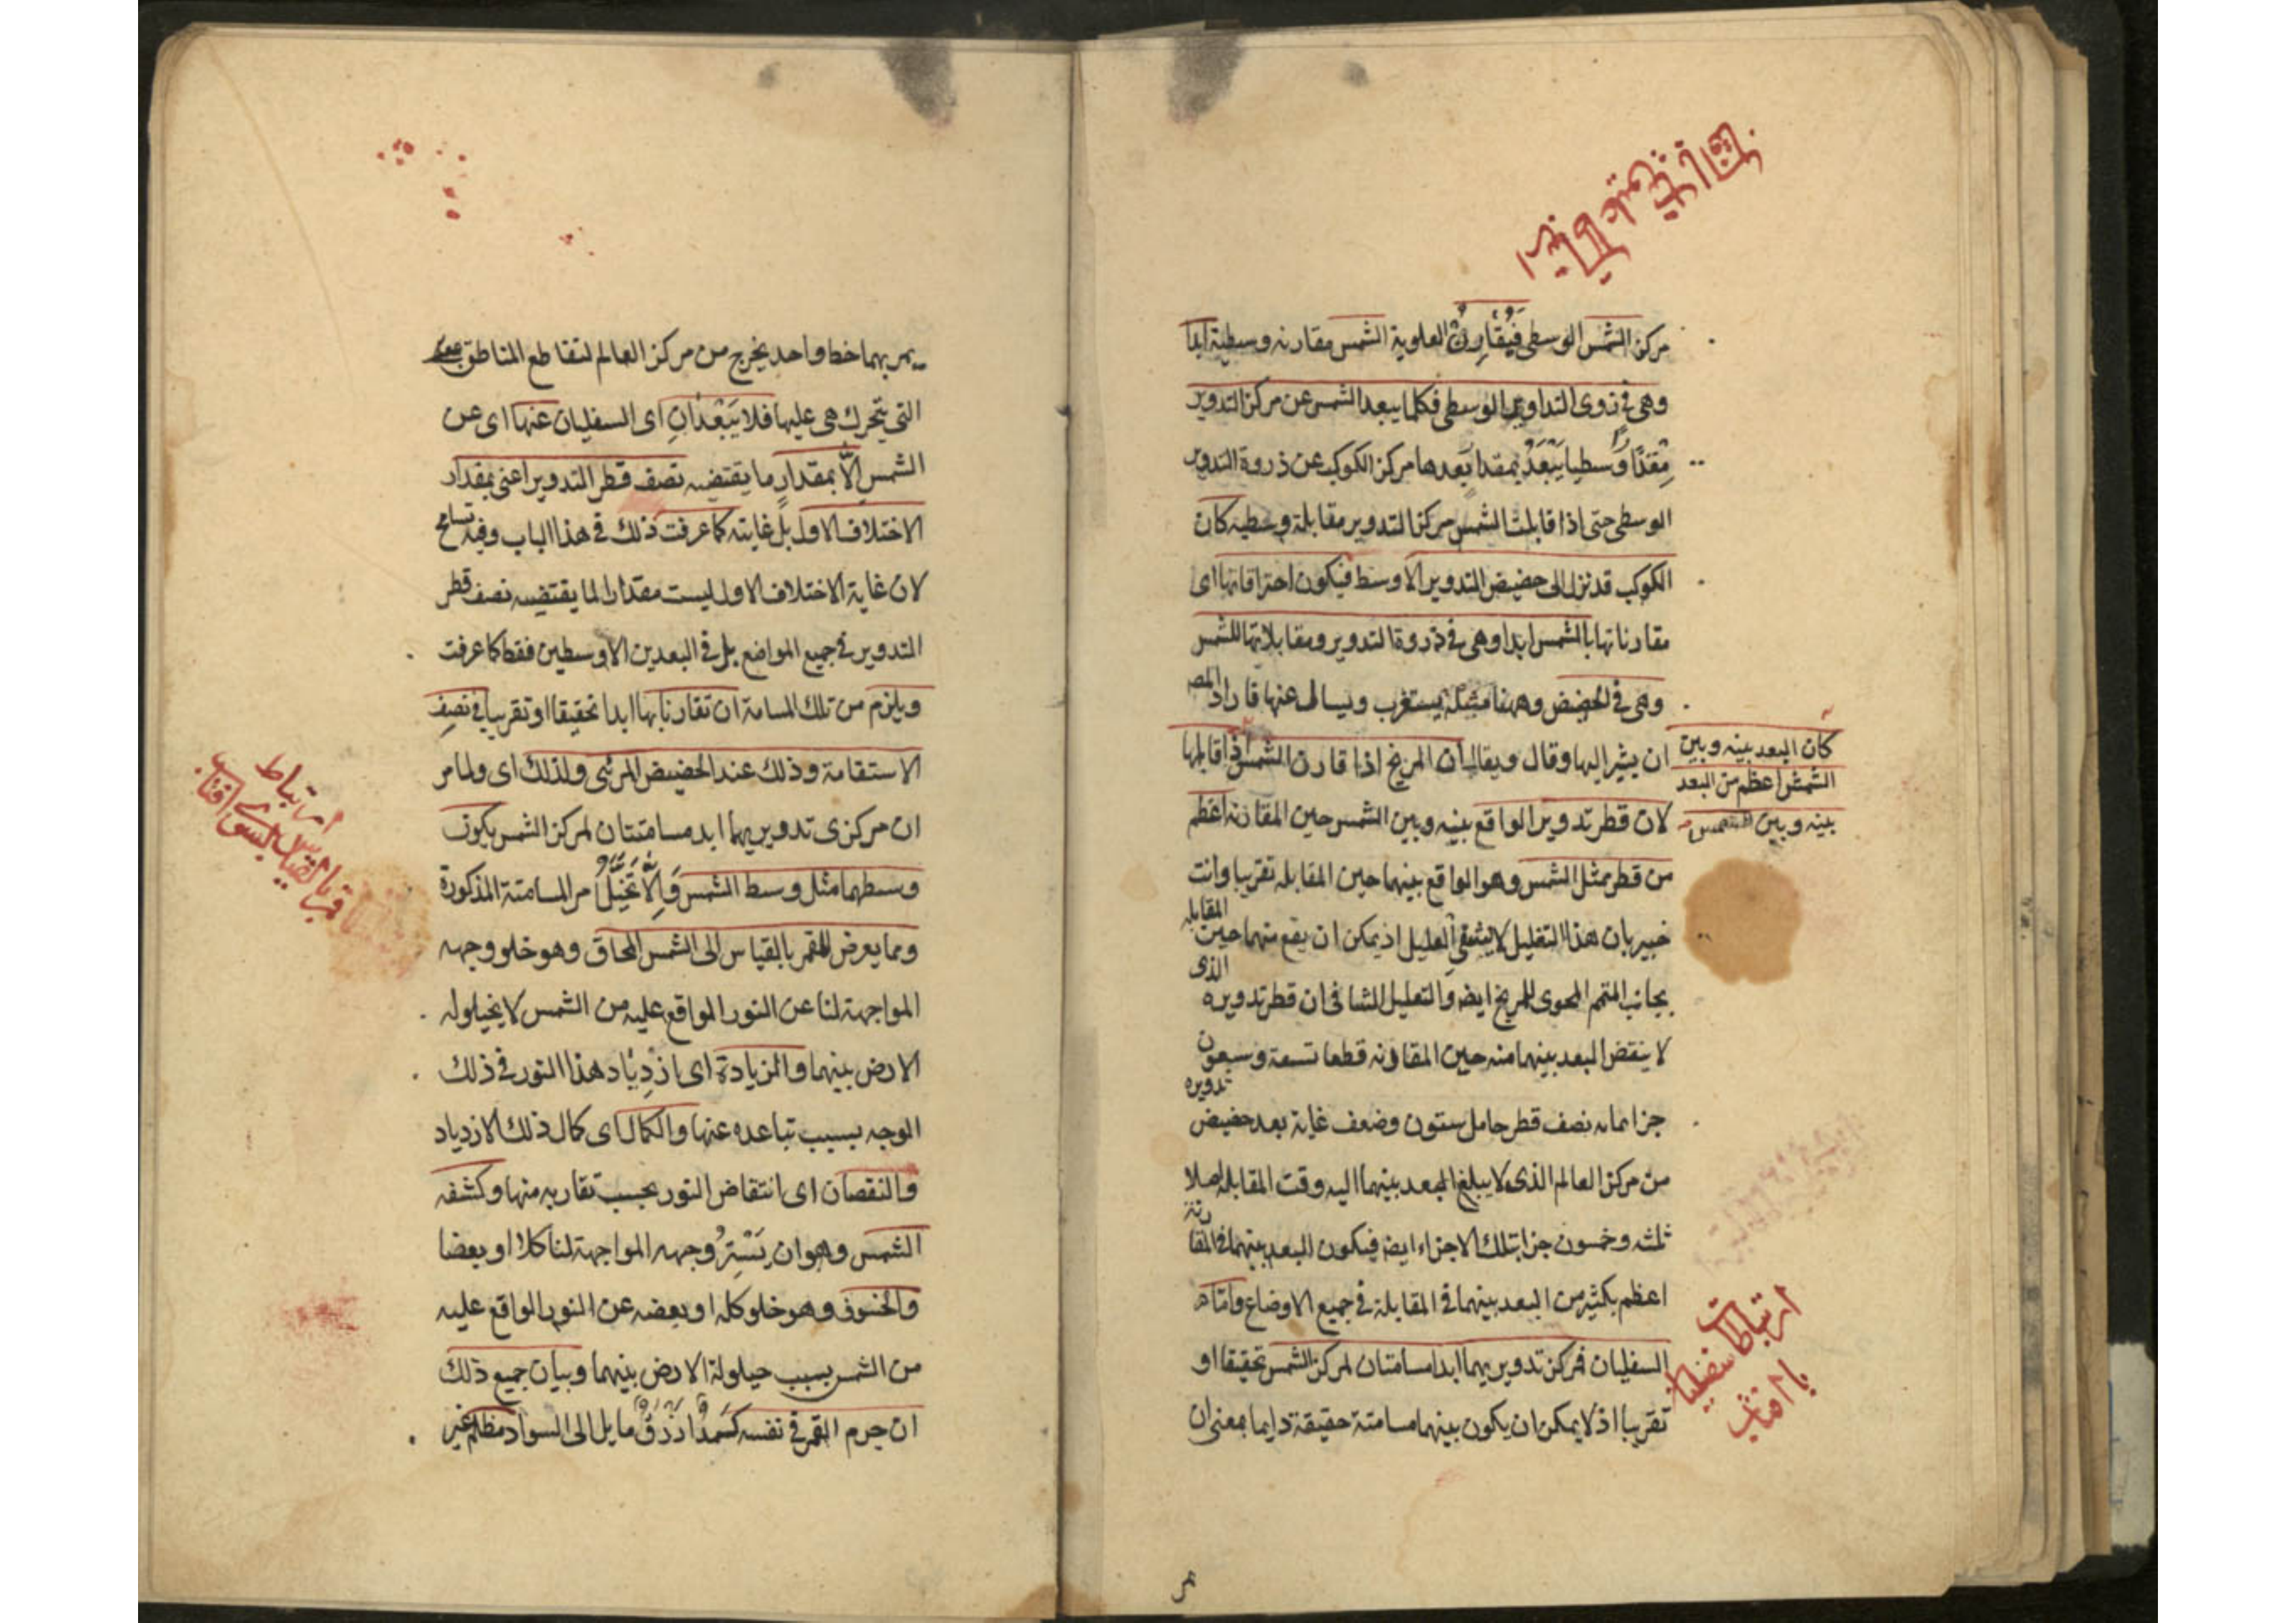 مركز الشمس الوسطى فيقارن العلوية الشمس مقارنه وسطية ابدا
وهى فى ذروى التداوير الوسطى فكلما يبعد الشمس عن مركز التدوير
مقدارا وسطيا يبعد بمقدار بعدها مركز الكوكب عن ذروة التدوير
الوسطى حتى اذا قابلت الشمس مركز التدوير مقابلة وسطيه كان
الكوكب قد نزل الى حضيض التدوير الاوسط فيكون احتراقاتها اى
مقارناتها بالشمس ابدا وهى فى ذروة التدوير ومقابلاتها للشمس
وهى فى الحضيض وههنا مسئلة يستغرب ويسال عنها فاراد المص
ان يشير اليها وقال ويقال ان المريخ اذا قارن الشمس اذا قابلها
كان البعد بينه وبين
الشمس اعظم من البعد
بينه وبين الشمس
لان قطر تدوير الواقع بينه وبين الشمس حين المقارنة اعظم
من قطر ممثل الشمس وهو الواقع بينهما حين المقابله تقريبا وانت
خبير بان هذا التعليل لا يشفى العليل اذ يمكن ان يقع منهما حين المقابله
بجانب المتمم المحوى للمريخ ايضا والتعليل الشافى ان قطر تدويره الذى
لا ينقص البعد بينهما منه حين المقارنه قطعا تسعة وسبعون
جزا مما به نصف قطر حامله ستون وضعف غاية بعد حضيض تدويره
من مركز العالم الذى لا يبلغ البعد بينهما اليه وقت المقابله اصلا
ثلثه وخمسون جزا بتلك الاجزاء ايضا فيكون البعد بينهما فى المقارنة
اعظم بكثير من البعد بينهما فى المقابلة فى جميع الاوضاع واما
السفليان فمركز تدويريهما ابدا مسامتان لمركز الشمس تحقيقا او
ارتباط سفليان
با افتاب
تقريبا اذ لا يمكن ان يكون بينهما مسامتة حقيقة دايما بمعنى ان
يمر بهما خط واحد يخرج من مركز العالم لتقاطع المناطق
التى يتحرك هى عليها فلا يبعدان اى السفليان عنها اى عن
الشمس الا بمقدار ما يقتضيه نصف قطر التدوير اعنى بمقدار
الاختلاف الاول بل غايته كما عرفت ذلك فى هذا الباب وفيه تسامح
لان غاية الاختلاف الاول ليست مقدارا لما يقتضيه نصف قطر
التدوير فى جميع المواضع بل فى البعدين الاوسطين فقط كما عرفت
ويلزم من تلك المسامتة ان تقارنا بها ابدا تحقيقا او تقريبا فى نصف
الاستقامة وذلك عند الحضيض المرئى ولذلك اى ولما مر
ان مركزى تدويريهما ابدا مسامتتان لمركز الشمس يكون
وسطهما مثل وسط الشمس والا تخيل مر المسامتة المذكورة
ارتباط
قمر با
بسوى افتاب
ومما يعرض للقمر بالقياس الى الشمس المحاق وهو خلو وجهه
المواجهة لنا عن النور الواقع عليه من الشمس لا يحيلوله
الارض بينهما والزيادة اى ازدياد هذا النور فى ذلك
الوجه بسبب تباعده عنها والكمال اى كمال ذلك الازدياد
والنقصان اى انتقاض النور بحسب تقاربه منها وكشفه
الشمس وهو ان يستر وجهه المواجهة لنا كلا او بعضا
والخسوف وهو خلو كله او بعضه عن النور الواقع عليه
من الشمس بسبب حيلولة الارض بينهما وبيان جميع ذلك
ان جرم القمر فى نفسه كمد ازرق مايل الى السواد مظلم غير